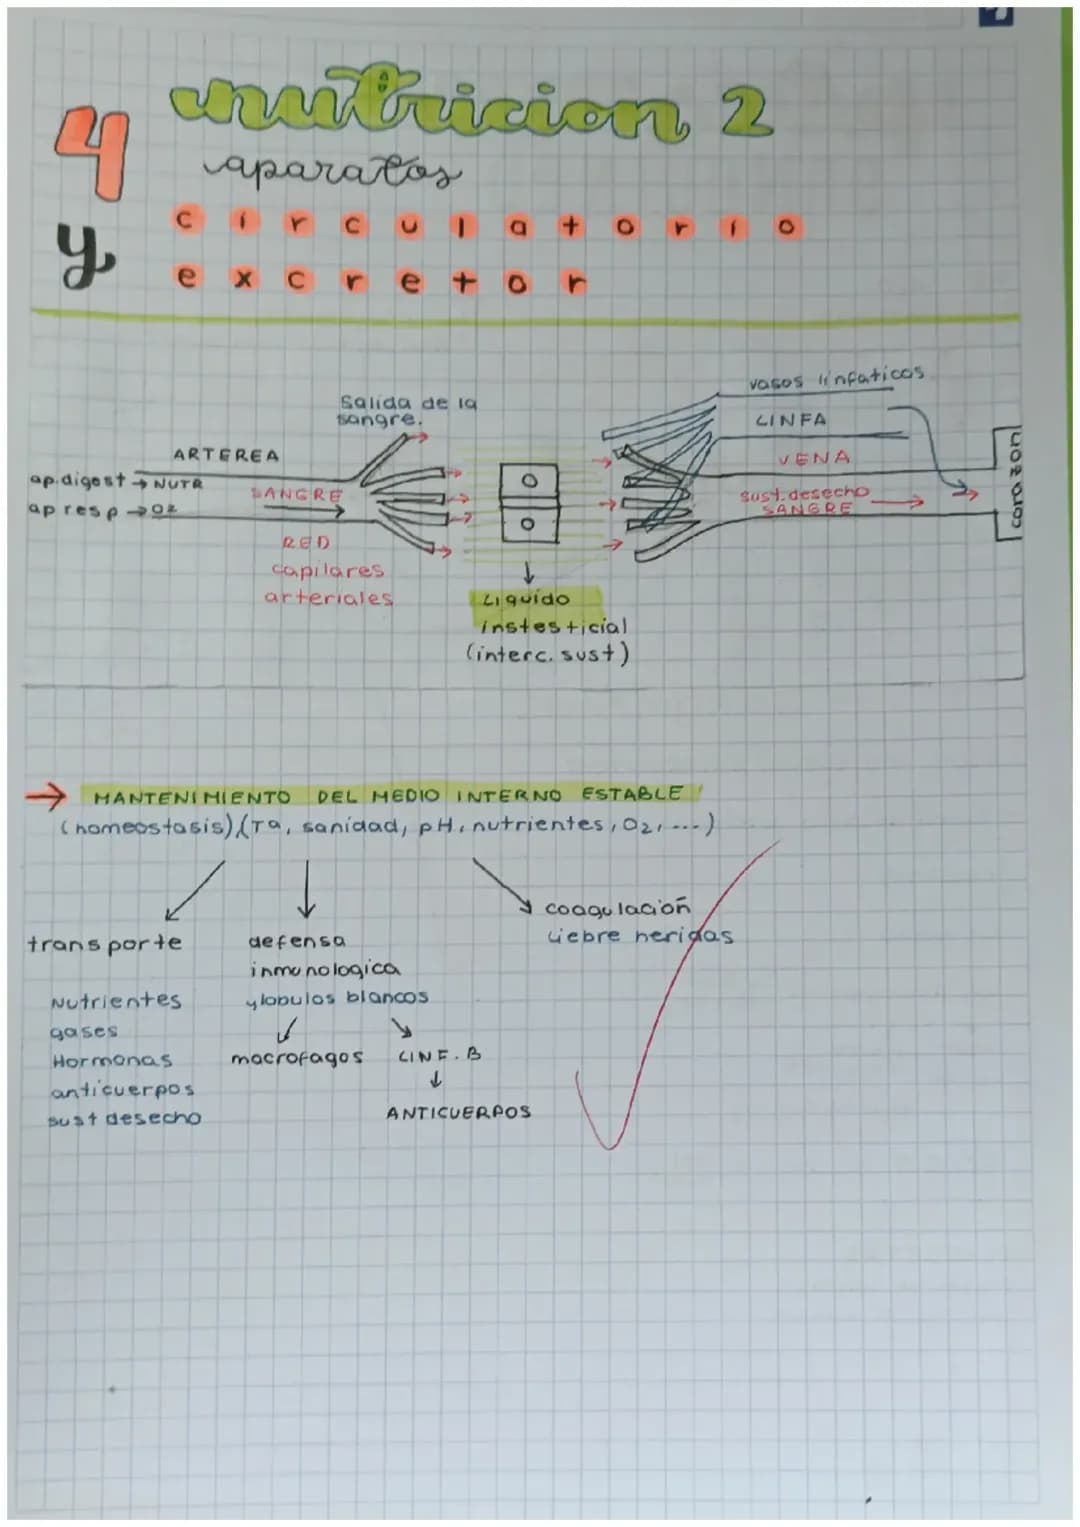 4 nutricion 2
aparatos
circulatorio
y excretor
vasos linfaticos
Salida de la
sangre.
LINFA
ARTEREA
VENA
ap.digest → NUTR
SANGRE
sust.desecho
SANGRE
ap resp → O2
corazon
RED
capilares
arteriales
Liquido
instesticial
(interc. sust)
→ MANTENIMIENTO DEL MEDIO INTERNO ESTABLE
(homeostasis) (Tª, sanidad, pH, nutrientes, O2, ...)
transporte
Nutrientes
gases
Hormonas
anticuerpos
sust desecho
defensa
inmunologica
globulos blancos
macrofagos
LINF. B
ANTICUERPOS
coagulacion
Liebre heridas